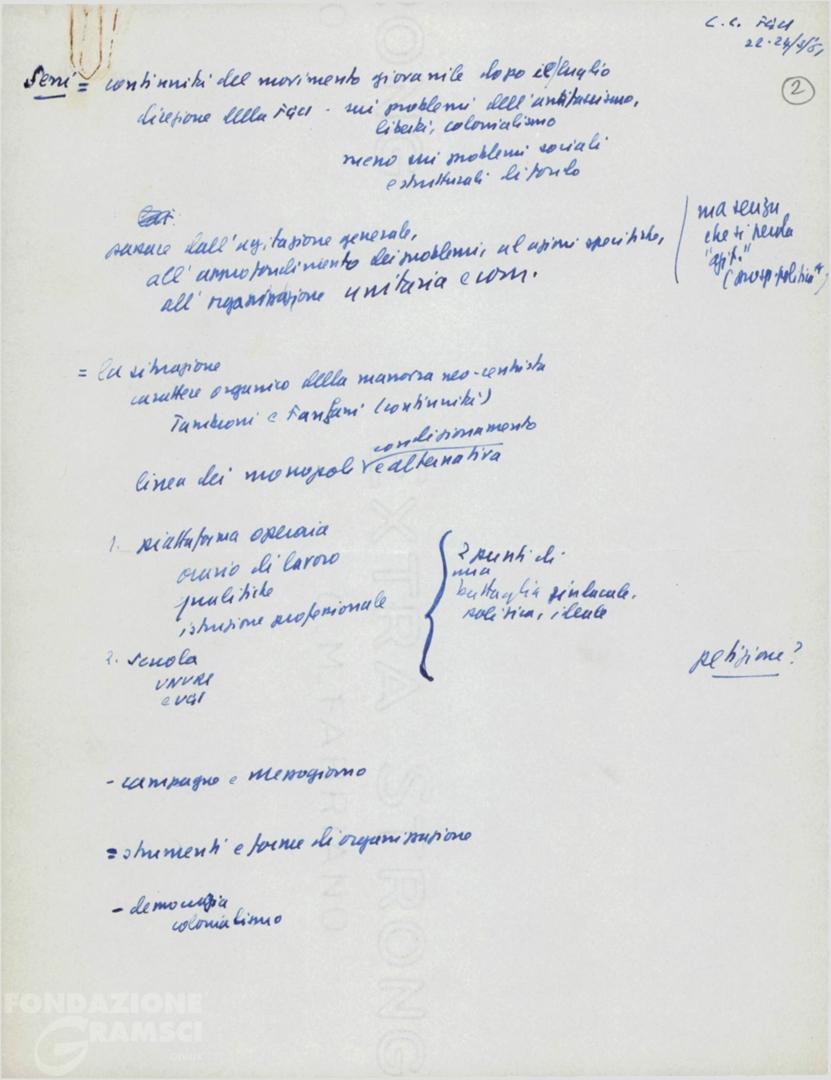 C.C. FGCI
22-24/3/61
2
Serri = continuità del movimento giovanile dopo il luglio
direzione della FGCI - sui problemi dell'antifascismo,
libertà, colonialismo
meno sui problemi sociali
e strutturali di fondo
passare dall'agitazione generale,
all'approfondimento dei problemi, ad azioni specifiche,
all'organizzazione unitaria e com.
ma senza
che si perda
"agit."
= la situazione
carattere organico della manovra neo-centrista
Tambroni e Fanfani (continuità)
condizionamento
linea dei monopoli e alternativa
1. piattaforma operaia
orario di lavoro
qualifiche
istruzione professionale
2. Scuola
UNURI
e UGI
2 punti di
una
battaglia sindacale,
politica, ideale
petizione?
- campagne e Mezzogiorno
= strumenti e forme di organizzazione
- democrazia
colonialismo
EXTRA STRONG
FONDAZIONE
GRAMSCI
ONLUS